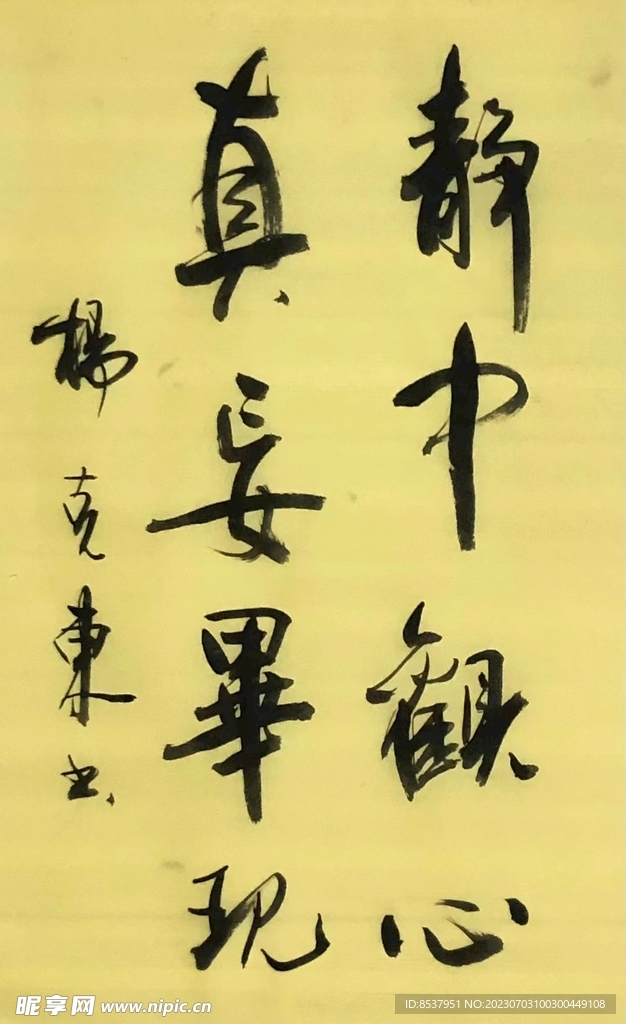 靜中觀心
真妄畢現
楊克東书
昵享网 www.nipic.cn
ID:8537951 NO:20230703100300449108